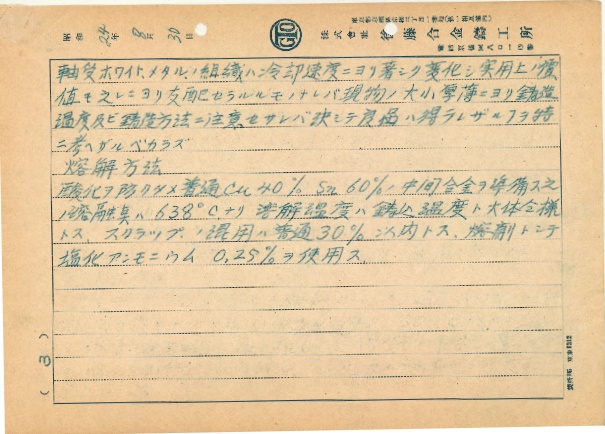 昭和 24年 8月 30日
GTO
株式会社 後藤合金鋳工所
軸受ホワイトメタルノ組織ハ冷却速度ニヨリ著シク変化シ実用上ノ価
値モ之レニヨリ支配セラルルモノナレバ現物ノ大小厚薄ニヨリ鋳造
温度及ビ鋳造方法ニ注意セザレバ決シテ良品ハ得ラレザル事ヲ特
ニ考ヘザルベカラズ
熔解方法
酸化ヲ防グタメ普通Cu 40% Sn 60% 中間合金ヲ準備ス之
ノ熔融点ハ 638°Cナリ 溶解温度ハ鋳込温度ト大体仝様
トス、スクラップノ混用ハ普通30%以内トス、熔剤トシテ
塩化アンモニウム 0.25%ヲ使用ス
(3)